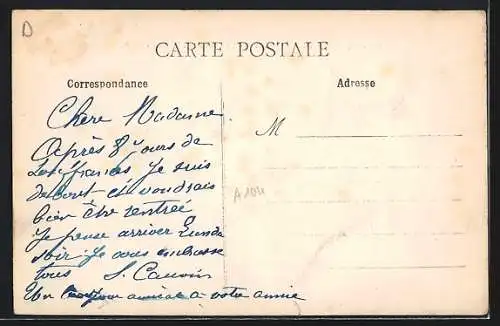 D
CARTE POSTALE
Correspondance
Adresse
Chère Madame
Après 8 jours de
souffrances je suis
debout et voudrais
bien être rentrée
je pense arriver Lundi
soir je vous embrasse
tous S. Cauvin
Un bonjour amical à votre amie
M
A104